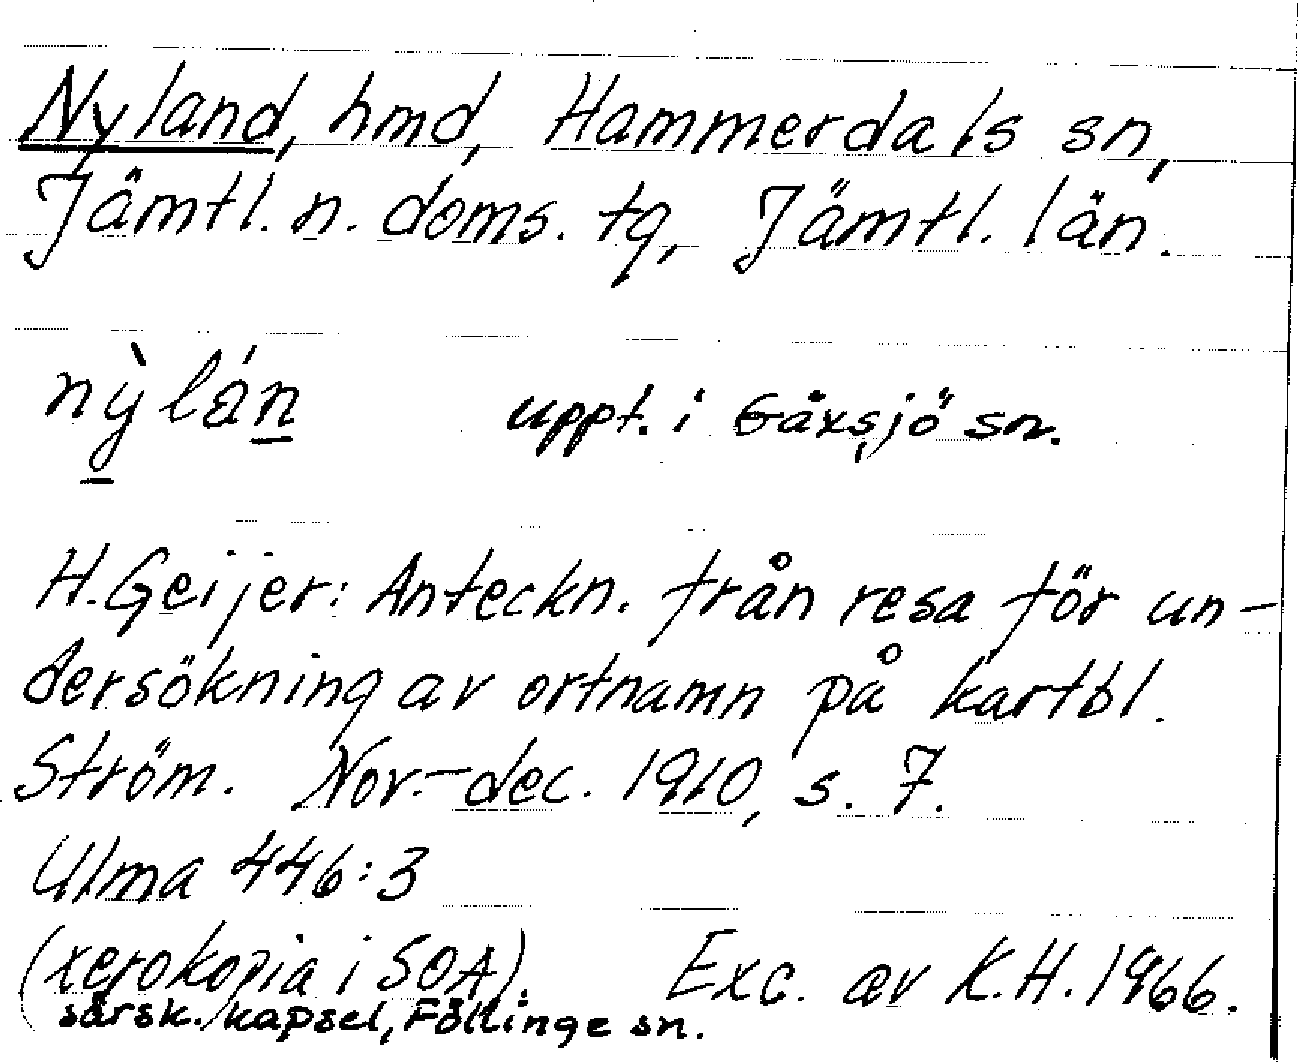 Nyland, hmd, Hammerdals sn,
Jämtl. n. doms. tg, Jämtl. län.
nỳlán uppt. i Gåxsjö sn.
H. Geijer: Anteckn. från resa för un-
dersökning av ortnamn på kartbl.
Ström. Nov.-dec. 1910, s. 7.
Ulma 446:3
(xerokopia i SOA). Exc. av K.H. 1966.
särsk. kapsel, Föllinge sn.